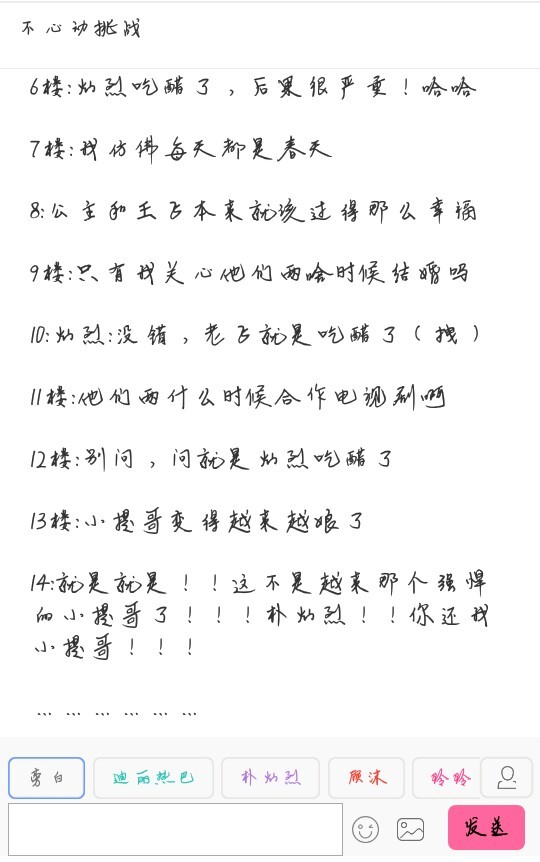 不心动挑战
6楼:灿烈吃醋了，后果很严重！哈哈
7楼:我仿佛每天都是春天
8:公主和王子本来就该过得那么幸福
9楼:只有我关心他们两啥时候结婚吗
10:灿烈:没错，老子就是吃醋了（拽）
11楼:他们两什么时候合作电视剧啊
12楼:别问，问就是灿烈吃醋了
13楼:小提哥变得越来越娘了
14:就是就是！！这不是越来那个强悍
的小提哥了！！！朴灿烈！！你还我
小提哥！！！
… … … … … …
旁白 迪丽热巴 朴灿烈 顾沫 玲玲
发送